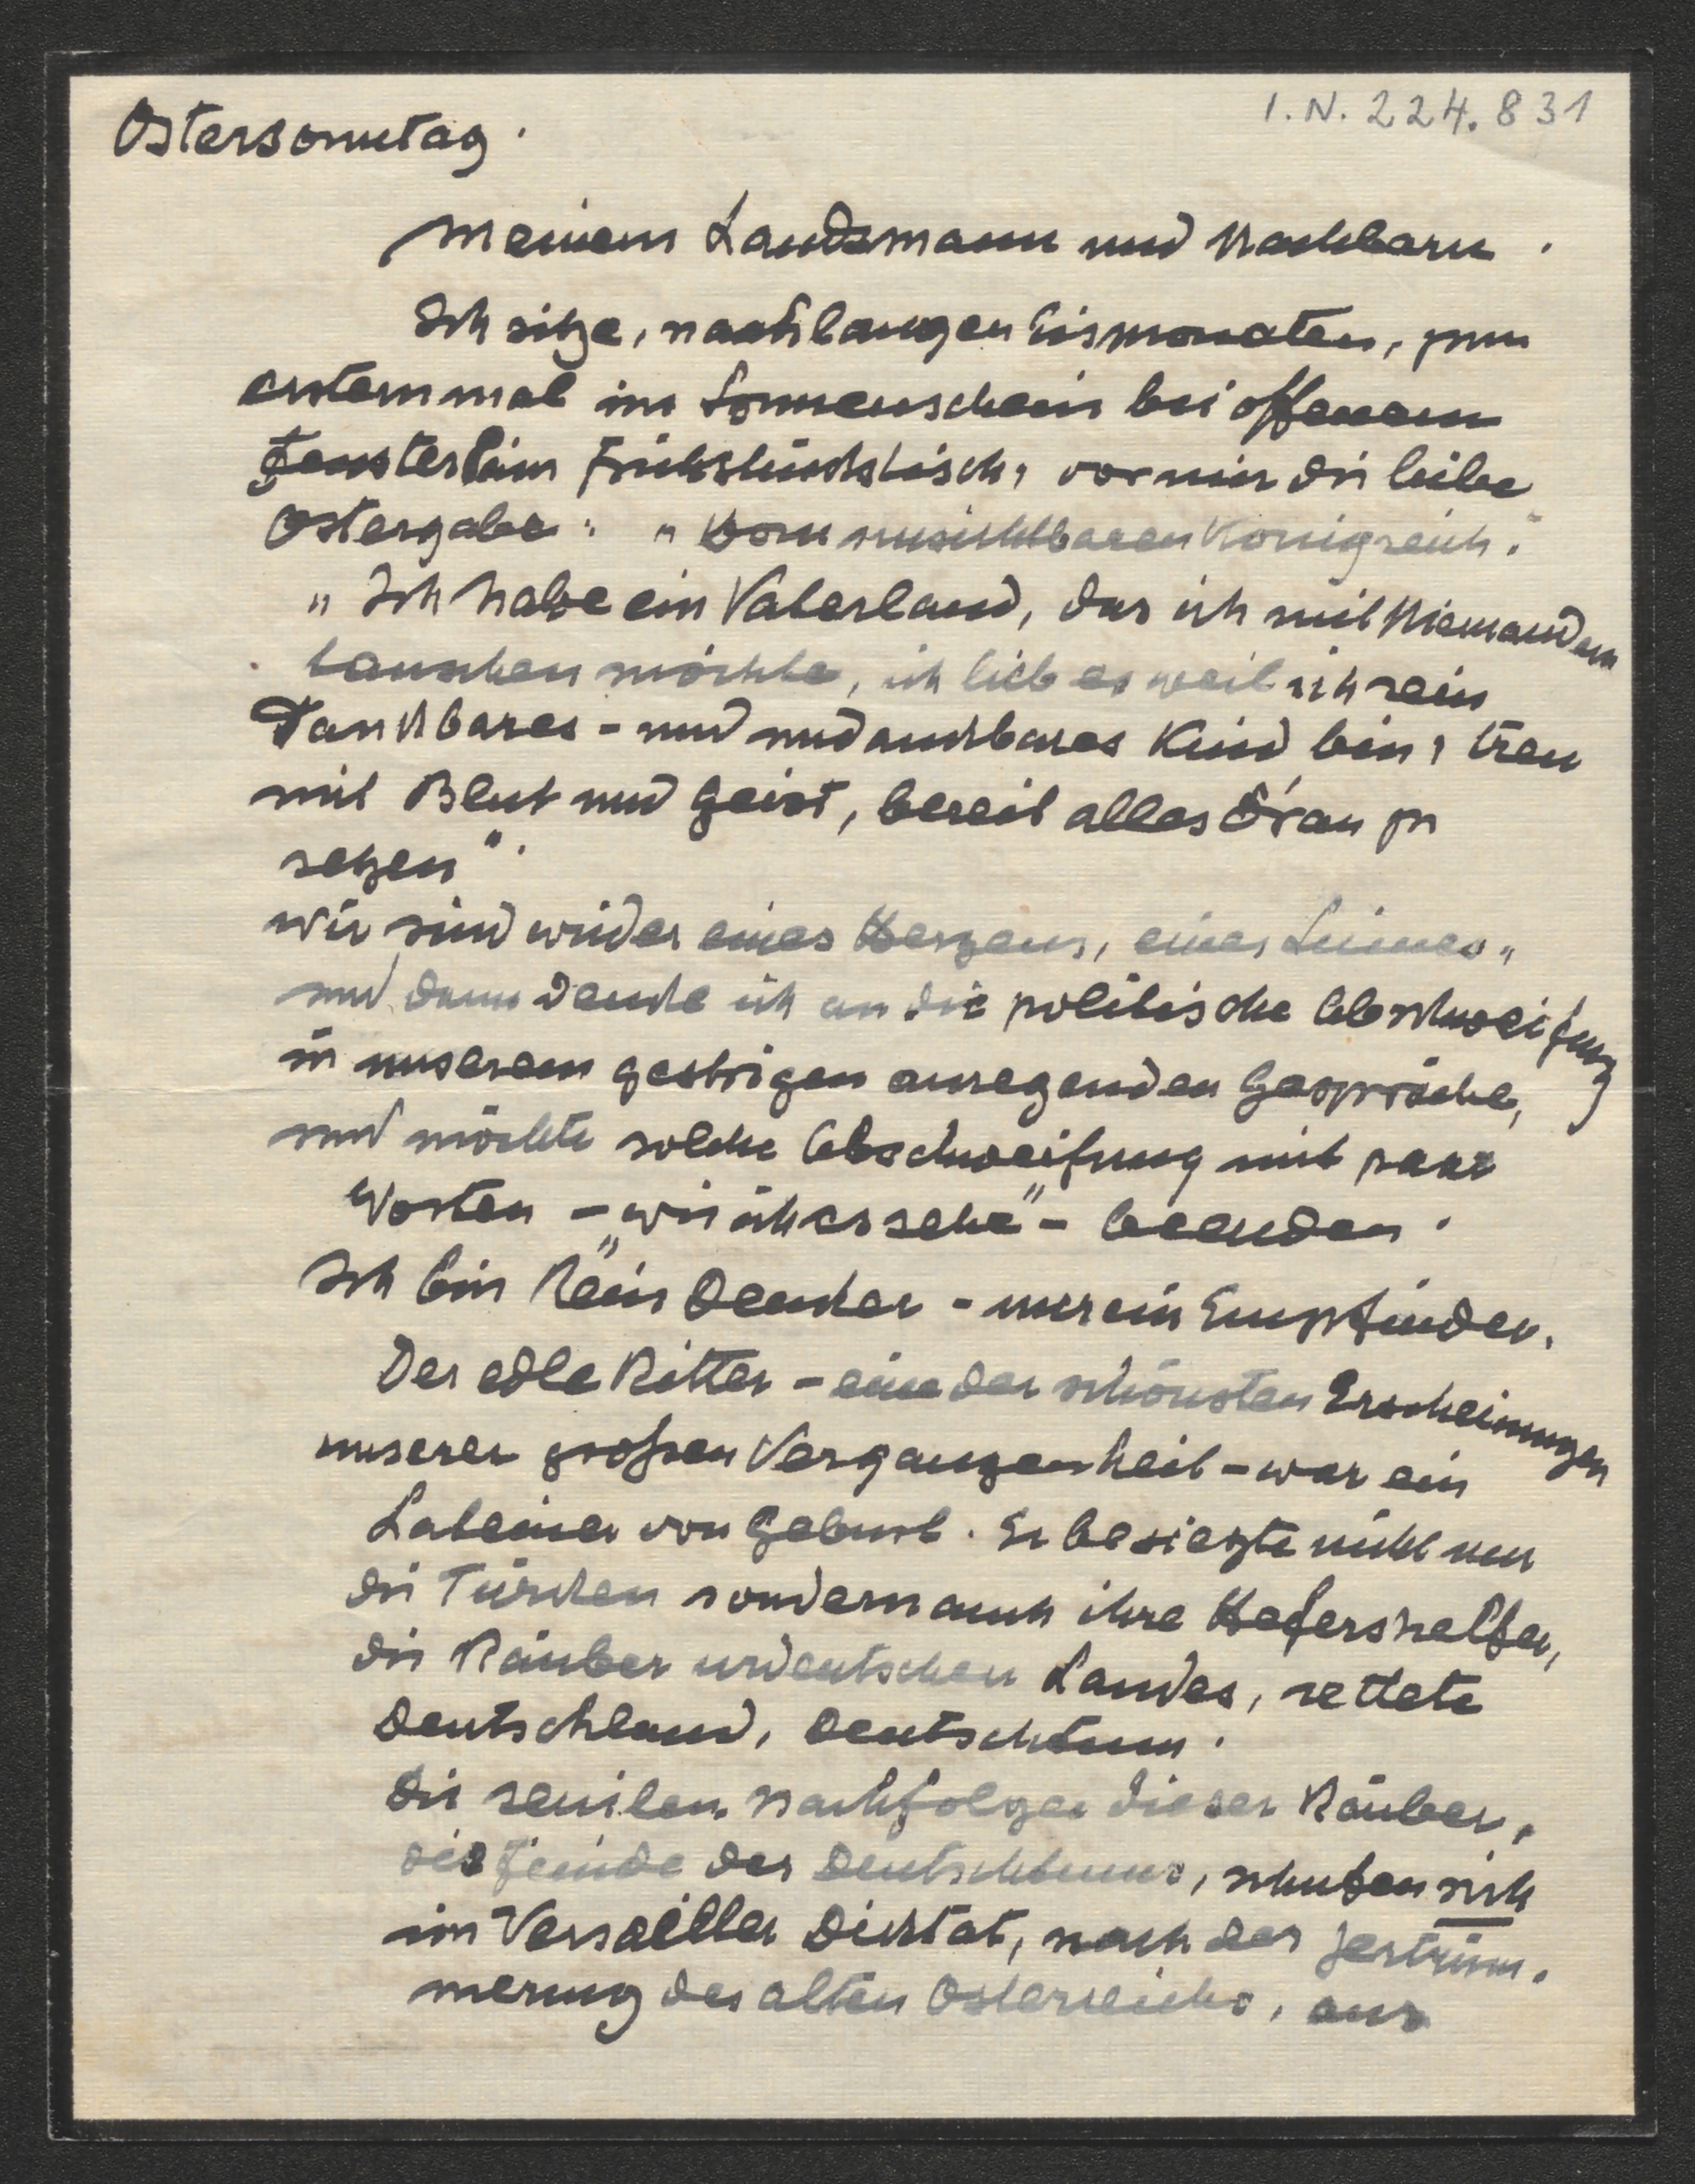 I.N. 224.831
Ostersonntag.
Meinem Landsmann und Nachbarn.
Ich sitze, nach langen Eismonaten, zum
erstenmal im Sonnenschein bei offenem
Fenster beim Frühstückstisch, vor mir die liebe
Ostergabe: "Vom unsichtbaren Königreich."
"Ich habe ein Vaterland, das ich mit Niemandem
tauschen möchte, ich lieb es weil ich sein
Dankbares - und undankbares Kind bin, treu
mit Blut und Geist, bereit alles d'ran zu
setzen".
Wir sind wieder eines Herzens, eines Sinnes,
und dann denke ich an die politische Abschweifung
in unserem gestrigen anregenden Gespräche,
und möchte solche Abschweifung mit paar
Worten - "wie ich es sehe" - beenden.
Ich bin kein Denker - nur ein Empfinder.
Der edle Ritter - eine der schönsten Erscheinungen
unserer großen Vergangenheit - war ein
Lateiner von Geburt. Er besiegte nicht nur
die Türken sondern auch ihre Hefershelfer,
die Räuber urdeutschen Landes, rettete
Deutschland, Deutschtum.
Die senilen Nachfolger dieser Räuber,
die Feinde des Deutschtums, schufen sich
im Versailler Diktat, nach der Zertrüm-
merung des alten Österreichs, aus